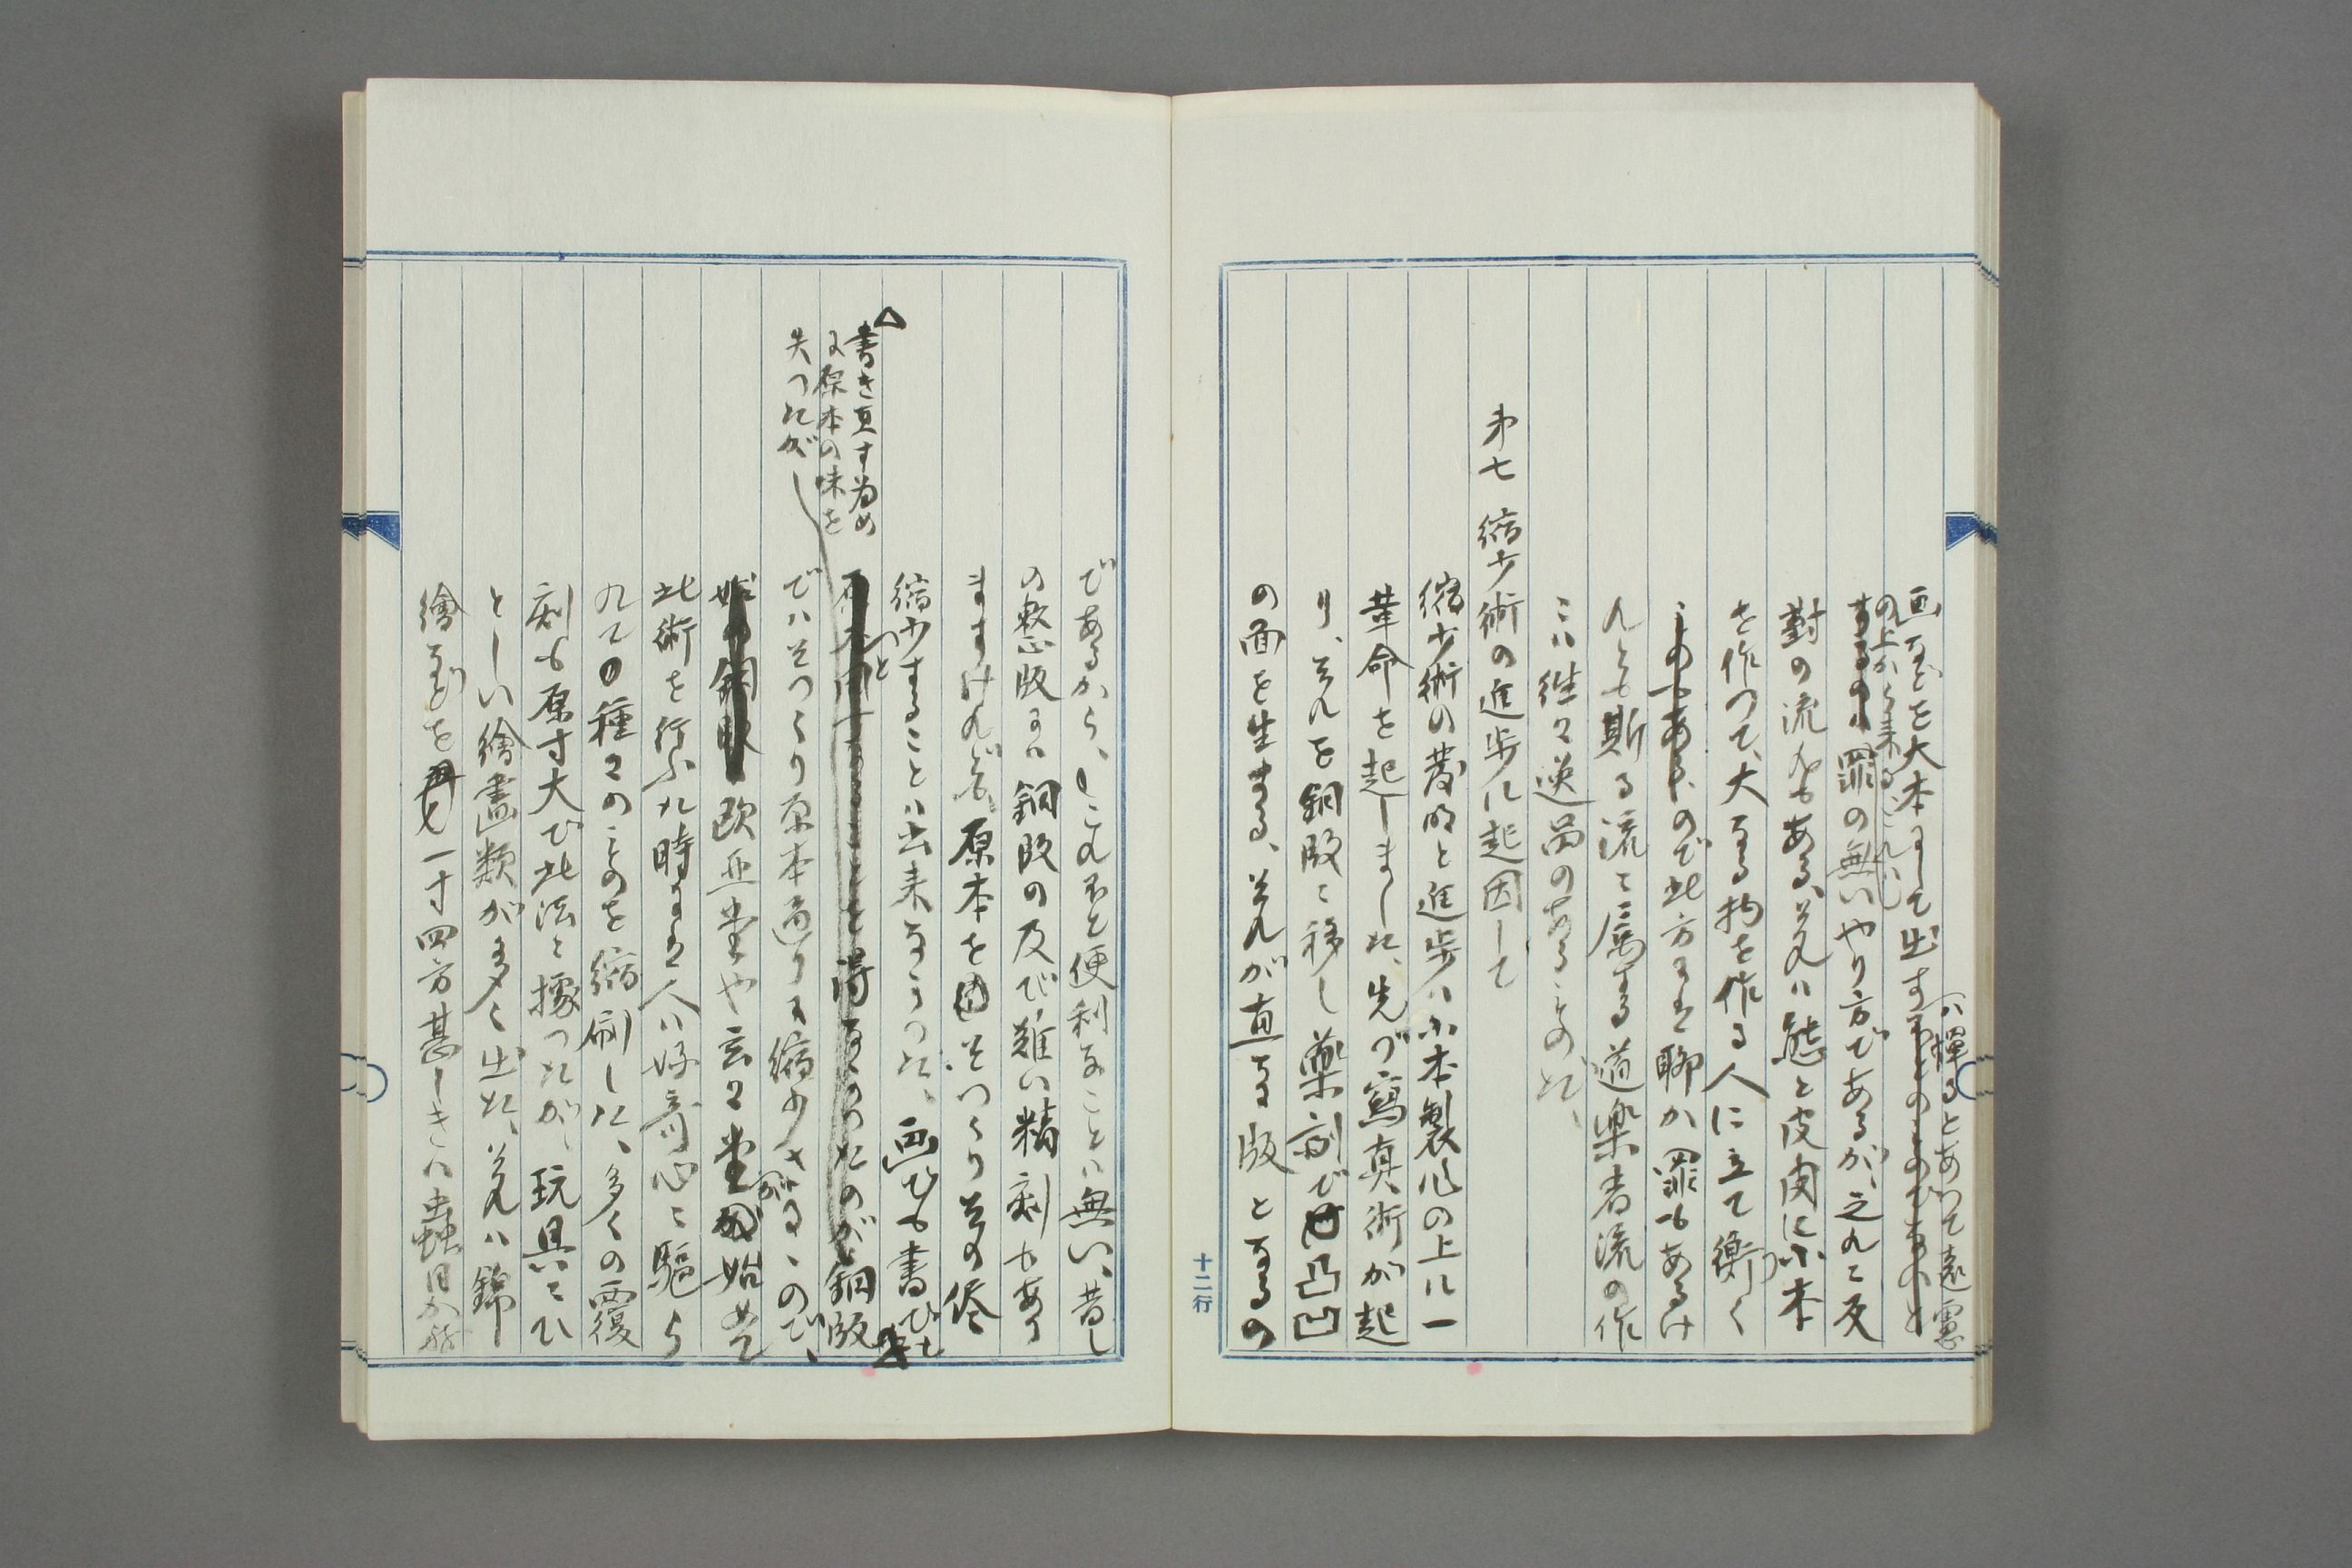 ハ憚るとあつて遠慮
画などを大本にして出す
の上から来る
罪の無いやり方であるが、之れに反
對の流儀もある、それハ態と皮肉に小本
を作つて、大なる物を作る人に立て衝く
ので此方にハ聊か罪もあるけ
れども斯る流に属する道楽者流の作
にハ往々逸品のあるものだ、
第七 縮少術の進歩に起因して
縮少術の発明と進歩ハ小本製作の上に一
革命を起しました、先づ寫真術が起
り、それを銅版に移し薬剤で凸凹
の面を生ずる、それが直ちに版となるの
十二行
であるから、こんな便利なことハ無い、昔し
の整版にハ銅版の及び難い精刻もあり
ますけれども、原本をそつくり其の侭
縮少することハ出来なかつた、画でも書でも
書き直す為め
に原本の味を
失つたが
銅版
でハそつくり原本通りに縮少さるゝので、
欧亜堂や玄々堂が始めて
此術を行ふた時にハ人ハ好奇心に驅ら
れて種々のものを縮刷した、多くの覆
刻も原寸大で此法に據つたが、玩具にひ
としい繪畫類が多く出た、それハ錦
繪などを一寸四方甚しきハ蟲目か